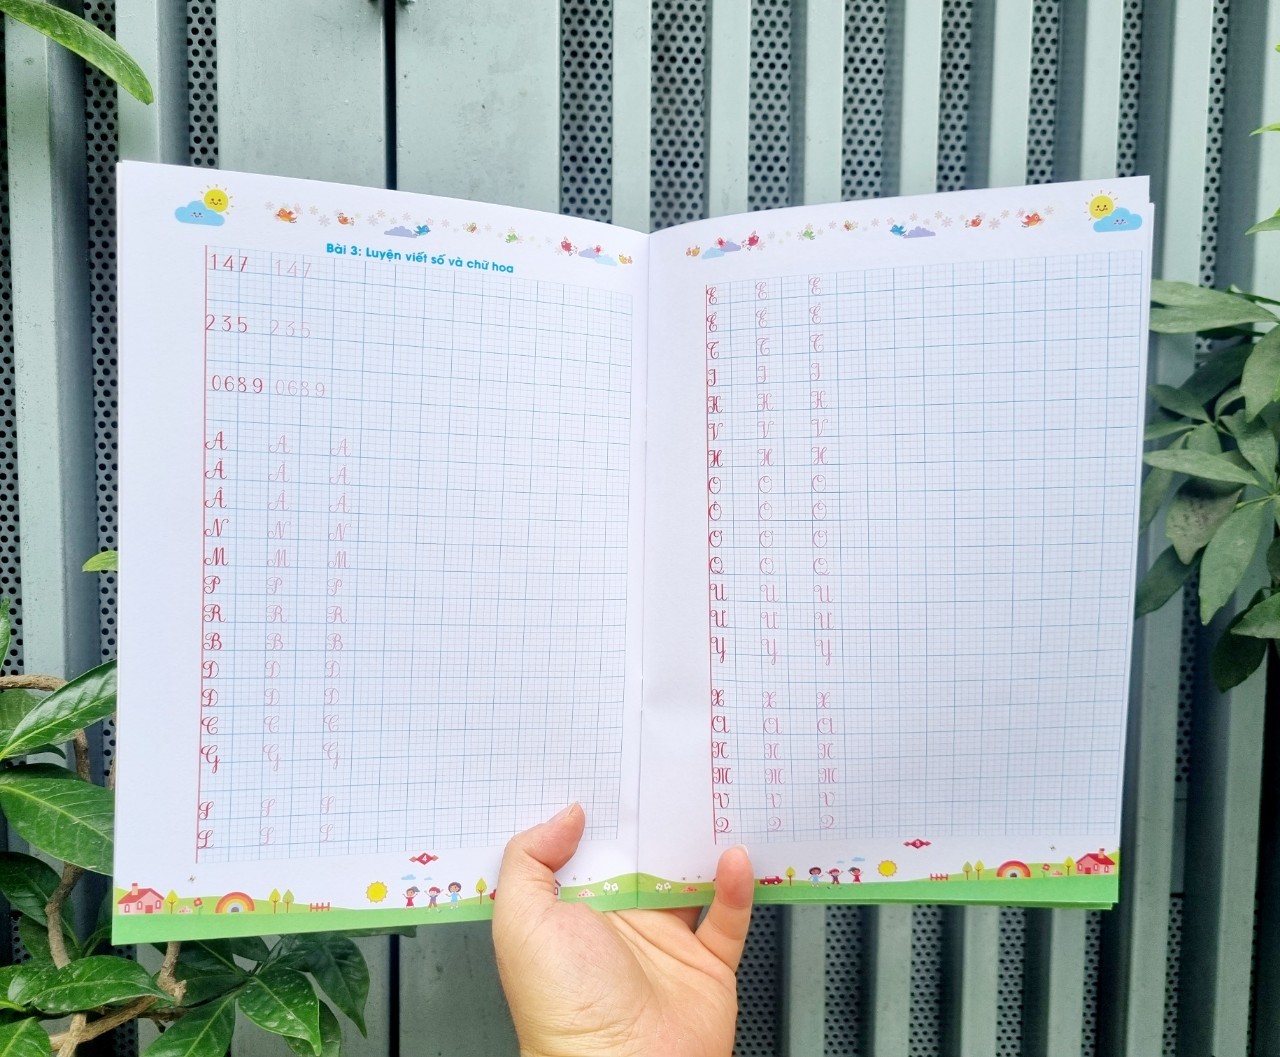 Bài 3: Luyện viết số và chữ hoa
147 147
235 235
0689 0689
A A A
Ă Ă Ă
Â Â Â
N N N
M M M
P P P
R R R
B B B
D D D
Đ Đ Đ
C C C
G G G
S S S
L L L
4
E E E
Ê Ê Ê
T T T
I I I
K K K
V V V
H H H
O O O
Ô Ô Ô
Ơ Ơ Ơ
Q Q Q
U U U
Ư Ư Ư
Y Y Y
X X X
A A A
N N N
M M M
V V V
Q Q Q
5